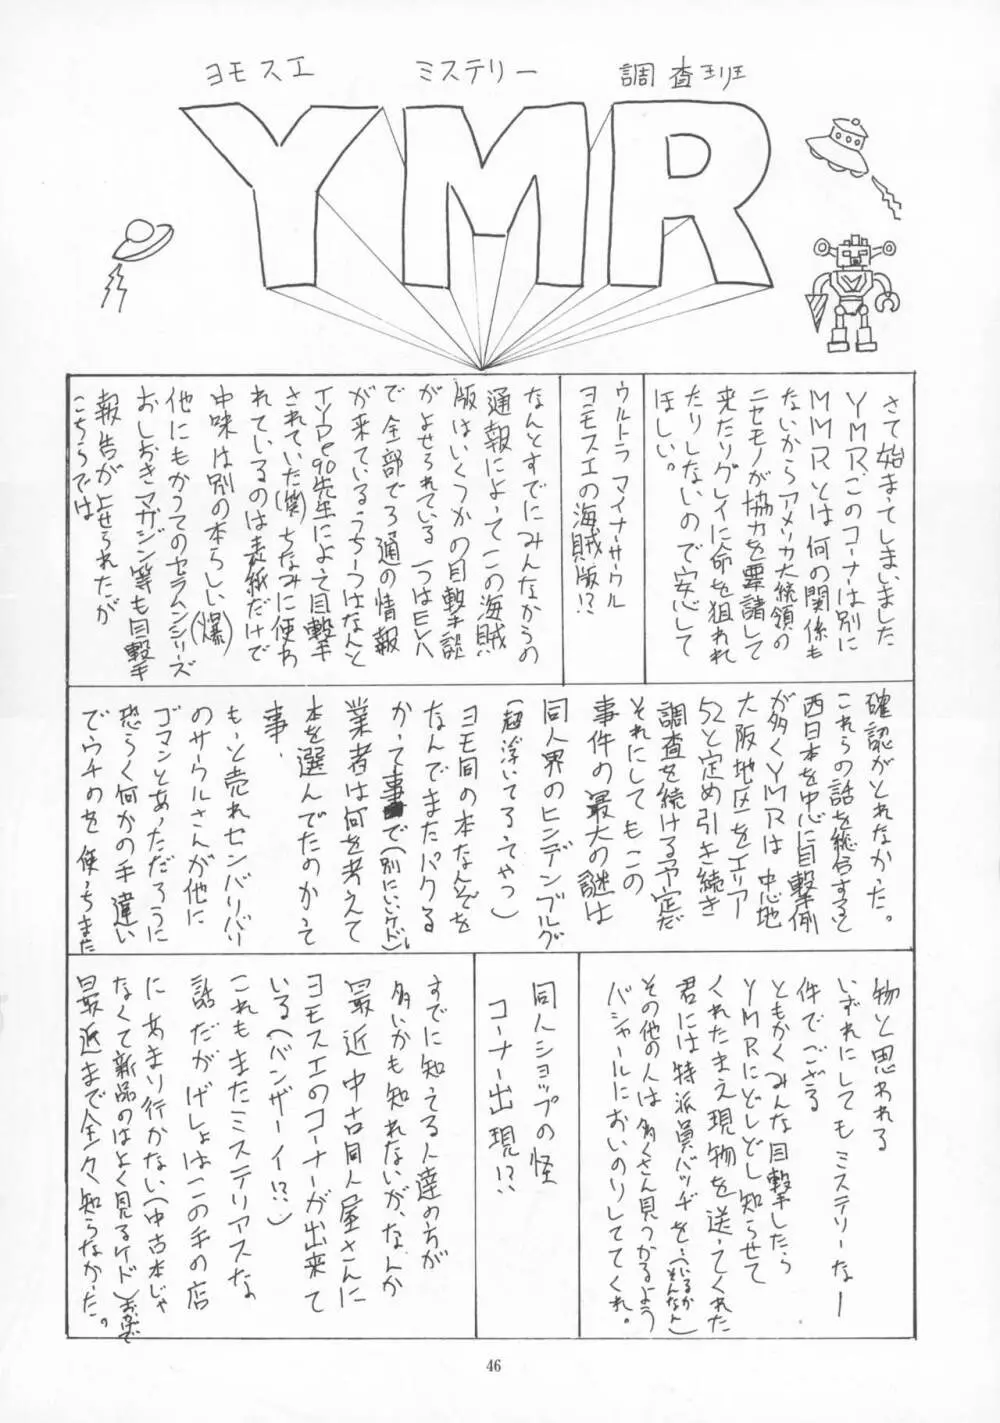 ヨモスエ ミステリー 調査班
YMR
さて始まってしまいました
YMR、このコーナーは別に
MMRとは何の関係も
ないからアメリカ大統領の
ニセモノが協力を要請して
来たりグレイに命を狙われ
たりしないので安心して
ほしい。
ウルトラマイナーサークル
ヨモスエの海賊版!?
なんとすでにみんなからの
通報によってこの海賊
版はいくつかの目撃談
がよせられている 一つはEVA
で全部で3通の情報
が来ているうち一つはなんと
TYPe90先生によって目撃
されていた(僕)ちなみに使わ
れているのは表紙だけで
中味は別の本らしい(爆)
他にもかつてのセラムンシリーズ
おしおきマガジン等も目撃
報告がよせられたが
こちらでは
確認がとれなかった。
これらの話を総合すると
西日本を中心に目撃例
が多くYMRは中心地
大阪地区をエリア
52と定め引き続き
調査を続ける予定だ
それにしてもこの
事件の最大の謎は
同人界のヒンデンブルグ
(超浮いてるってやつ)
ヨモ同の本なんぞを
なんでまたパクる
かって事で(別にいいケド)、
業者は何を考えて
本を選んでたのかって
事、
もっと売れセンバリバリ
のサークルさんが他に
ゴマンとあっただろうに
恐らく何かの手違い
でウチのを使っちまた
物と思われる
いずれにしてもミステリーな
件でござる
ともかくみんな目撃したら
YMRにどしどし知らせて
くれたまえ現物を送ってくれた
君には特派員バッヂを…(いるかそんなん)
その他の人は多くさん見つかるよう
バシャールにおいのりしててくれ。
同人ショップの怪
コーナー出現!?
すでに知ってる人達の方が
多いかも知れないが、なんか
最近 中古同人屋さんに
ヨモスエのコーナーが出来て
いる(バンザーイ!?)
これもまたミステリアスな
話だがげしょはこの手の店
にあまり行かない(中古本じゃ
なくて新品のはよく見るケド)おかげで
最近まで全々知らなかった。
46